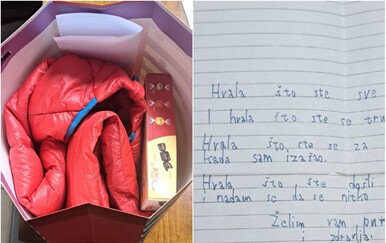 Hvala što ste sve
I hvala što ste se
Hvala što ste se za
kada sam izašao.
Hvala što ste došli
i nadam se da se nitko
Želim vam
i zdravlja.